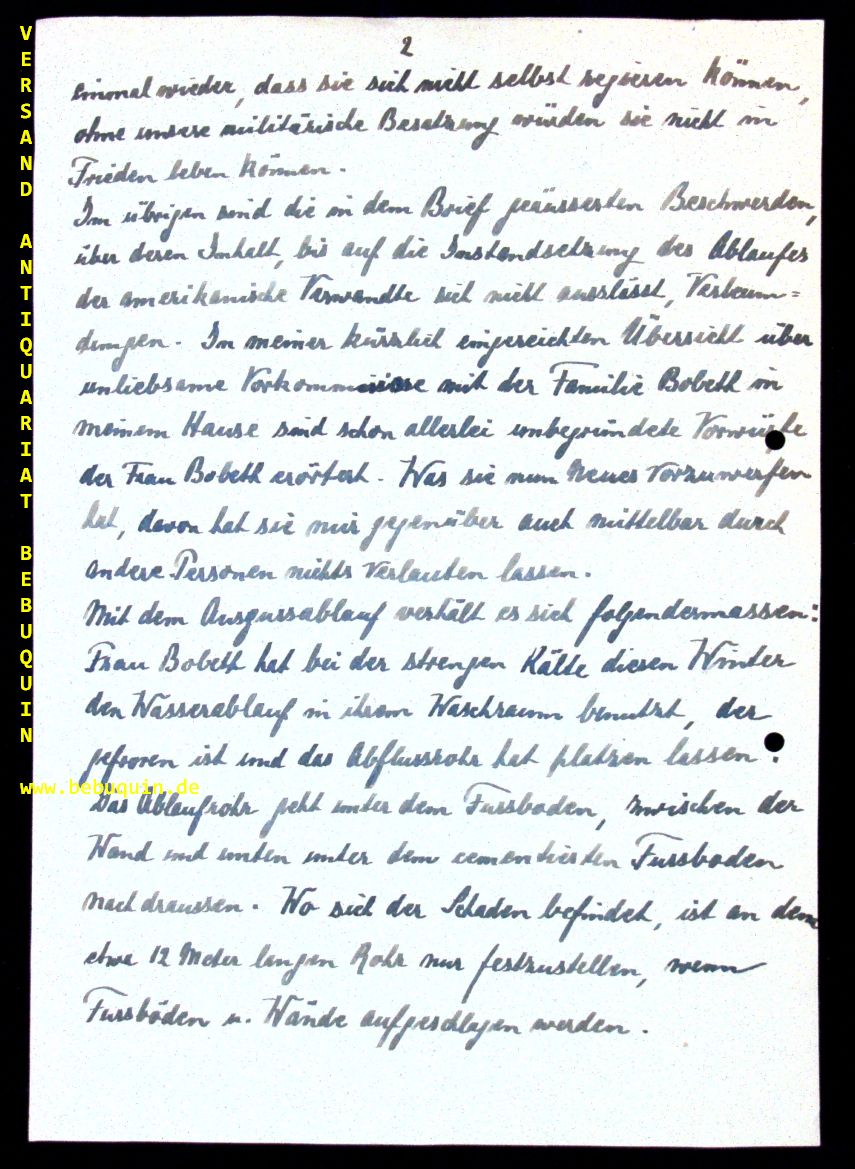 VERSAND ANTIQUARIAT BEBUQUIN
www.bebuquin.de
2
einmal wieder, dass sie sich nicht selbst regieren können,
ohne unsere militärische Besatzung würden sie nicht in
Frieden leben können.
Im übrigen sind die in dem Brief geäusserten Beschwerden,
über deren Inhalt, bis auf die Instandsetzung des Ablaufes
der amerikanische Verwandte sich nicht ausslässt, Verleum=
dungen. In meiner kürzlich eingereichten Übersicht über
unliebsame Vorkommnisse mit der Familie Bobeth in
meinem Hause sind schon allerlei unbegründete Vorwürfe
der Frau Bobeth erörtert. Was sie nun Neues vorzuwerfen
hat, davon hat sie mir gegenüber auch mittelbar durch
andere Personen nichts verlauten lassen.
Mit dem Ausgussablauf verhält es sich folgendermassen:
Frau Bobeth hat bei der strengen Kälte diesen Winter
den Wasserablauf in ihrem Waschraum benutzt, der
gefroren ist und das Abflussrohr hat platzen lassen.
Das Ablaufrohr geht unter dem Fussboden, zwischen der
Wand und unten unter dem cementierten Fussboden
nach draussen. Wo sich der Schaden befindet, ist an dem
etwa 12 Meter langen Rohr nur festzustellen, wenn
Fussböden u. Wände aufgeschlagen werden.